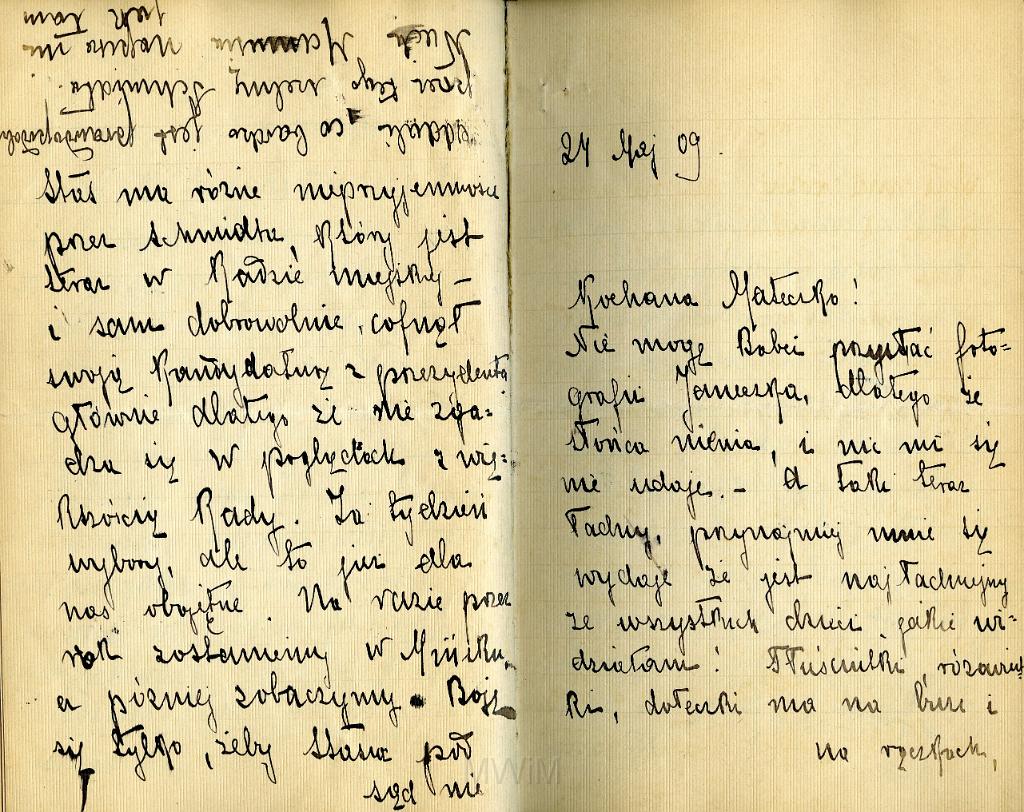 24 Maj 09.
Kochana Mateczko!
Nie mogę Babci przysłać foto=
grafii Janeczka, dlatego że
słońca niema, i nic mi się
nie udaje. – A taki teraz
ładny, przynajmniej mnie się
wydaje że jest najładniejszy
ze wszystkich dzieci jakie wi=
działam! Tłuściutki, różowiut=
ki, dołeczki ma na buzi i
na rączkach,
Staś ma różne nieprzyjemności
przez Schmidta, który jest
teraz w Radzie miejskiej –
i sam dobrowolnie cofnął
swoją kandydaturę z prezydenta
głównie dlatego że nie zga=
dza się w poglądach z wię=
kszością Rady. Za tydzień
wybory, ale to już dla
nas obojętne. Na razie przez
rok zostaniemy w Mińsku,
a później zobaczymy. Boję
się tylko, żeby Stasia pod
sąd nie
oddali, co bardzo jest prawdopodob
przez tego Schmidta.
Niech Mamusia napisze mi
jak tam
MWiM